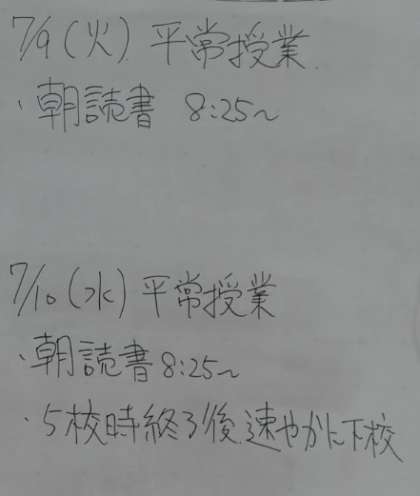 7/9(火) 平常授業
・朝読書 8:25~
7/10(水) 平常授業
・朝読書 8:25~
・5校時終了後、速やかに下校